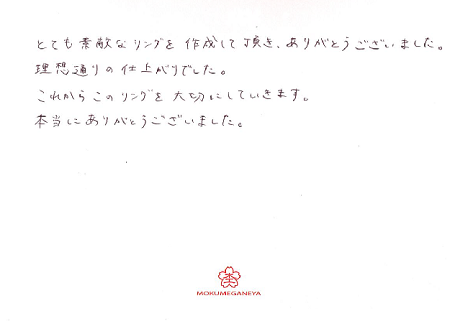 とても素敵なリングを作成して頂き、ありがとうございました。
理想通りの仕上がりでした。
これからこのリングを大切にしていきます。
本当にありがとうございました。
MOKUMEGANEYA